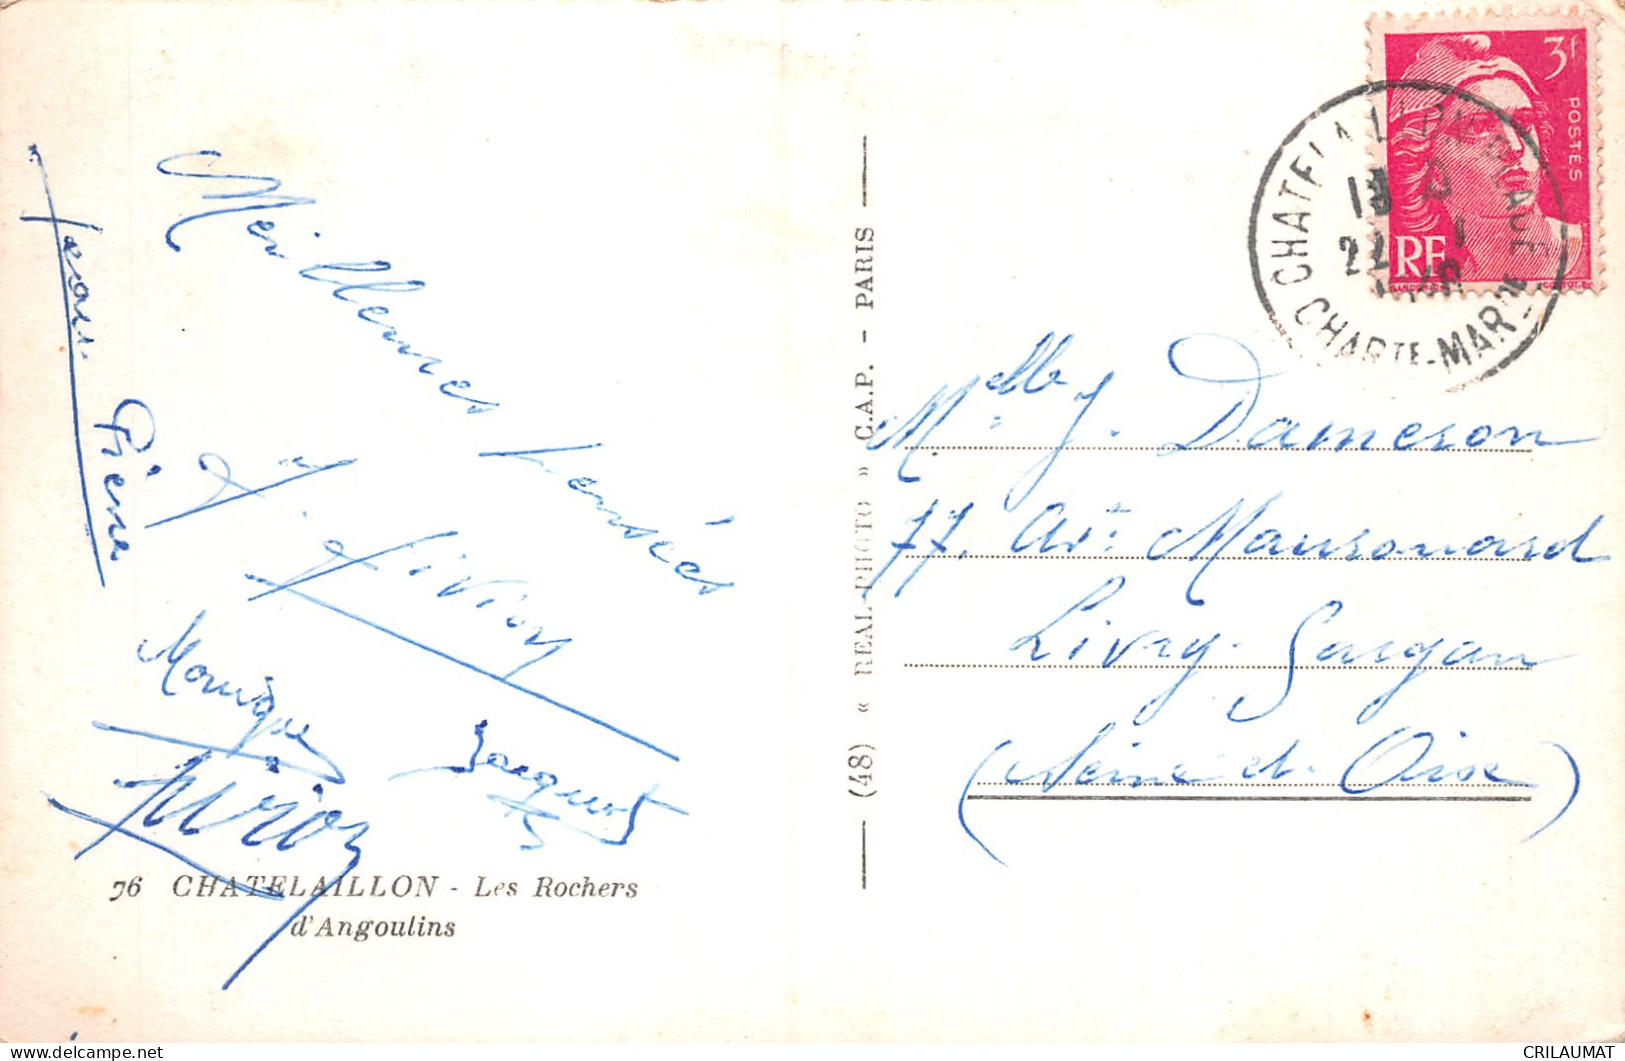 Meilleures pensées
Jean
Pierre
Monique
Jacquot
76 CHATELAILLON - Les Rochers
d'Angoulins
(48) « REAL-PHOTO » C.A.P. - PARIS
3f
POSTES
RF
CHATELAILLON PLAGE
CHARTE-MARme
Melle J. Dameron
77. Av: Maurouard
Livry-Gargan
(Seine et Oise)
CRILAUMAT